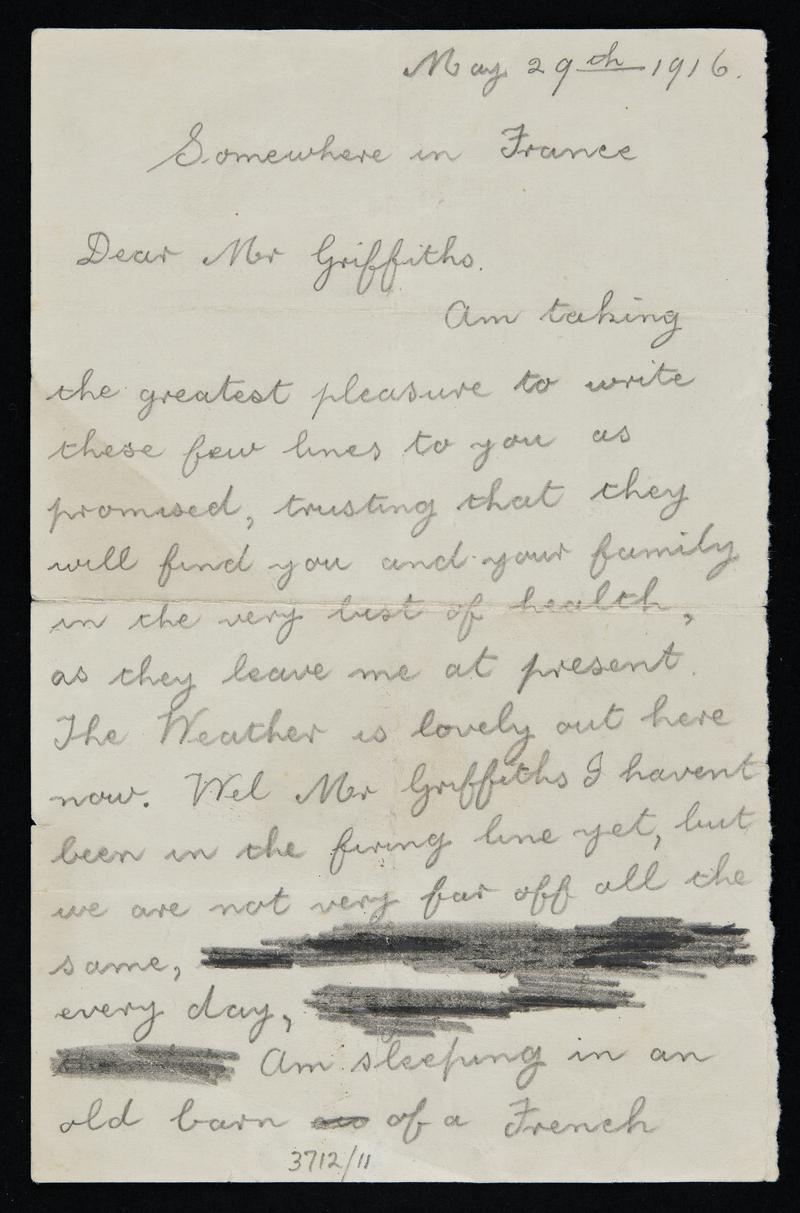 May 29th 1916.
Somewhere in France
Dear Mr Griffiths.
Am taking
the greatest pleasure to write
these few lines to you as
promised, trusting that they
will find you and your family
in the very best of health,
as they leave me at present.
The Weather is lovely out here
now. Wel Mr Griffiths I havent
been in the firing line yet, but
we are not very far off all the
same,
every day,
Am sleeping in an
old barn of a French
3712/11